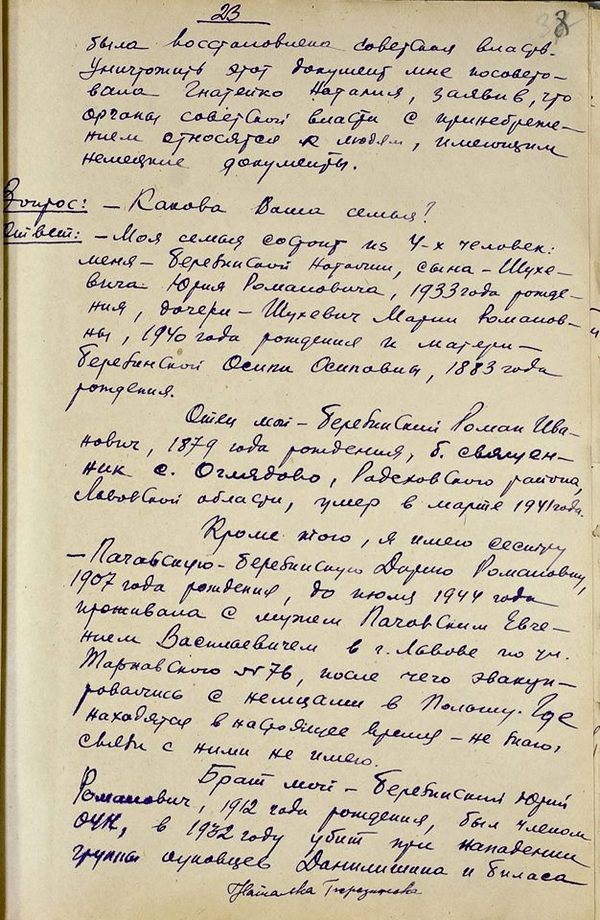 23
38
была восстановлена советская власть.
Уничтожить этот документ мне посовето-
вала Гнатейко Наталия, заявив, что
органы советской власти с пренебреже-
нием относятся к людям, имеющим
немецкие документы.
Вопрос: – Какова Ваша семья?
Ответ: – Моя семья состоит из 4-х человек:
меня – Березинской Наталии, сына – Шухе-
вича Юрия Романовича, 1933 года рожде-
ния, дочери – Шухевич Марии Романов-
ны, 1940 года рождения и матери –
Березинской Осипы Осиповны, 1883 года
рождения.
Отец мой – Березинский Роман Ива-
нович, 1879 года рождения, б. священ-
ник с. Оглядово, Радеховского района,
Львовской области, умер в марте 1941 года.
Кроме того, я имею сестру
– Пачовскую-Березинскую Дарию Романовну,
1907 года рождения, до июля 1944 года
проживала с мужем Пачовским Евге-
нием Васильевичем в г. Львове по ул.
Тарнавского № 76, после чего эвакуи-
ровались с немцами в Польшу. Где
находятся в настоящее время – не знаю,
связи с ними не имею.
Брат мой – Березинский Юрий
Романович, 1912 года рождения, был членом
ОУН, в 1932 году убит при нападении
группы оуновцев Данилишина и Биласа
Наталка Березинська